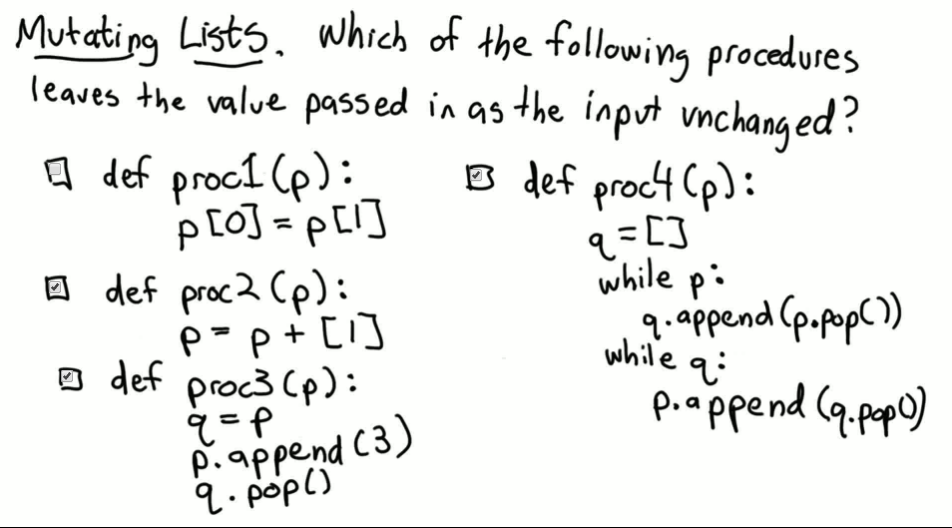 Mutating Lists. Which of the following procedures
leaves the value passed in as the input unchanged?
def proc1(p):
p[0] = p[1]
def proc2(p):
p = p + [1]
def proc3(p):
q = p
p.append(3)
q.pop()
def proc4(p):
q = []
while p:
q.append(p.pop())
while q:
p.append(q.pop())